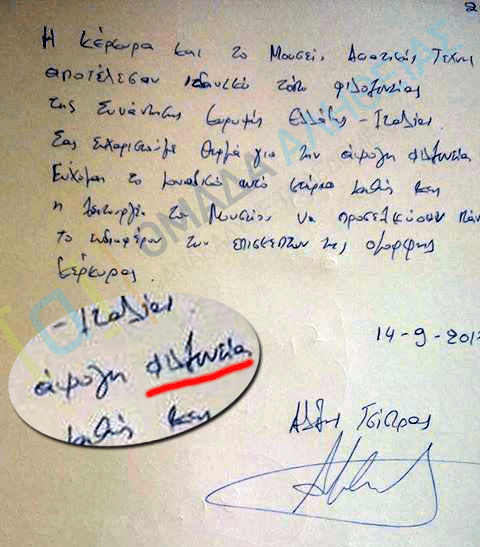 Η Κέρκυρα και το Μουσείο Ασιατικής Τέχνης
αποτέλεσαν ιδανικό τόπο φιλοξενίας
της Συνάντησης Κορυφής Ελλάδας - Ιταλίας
Σας ευχαριστούμε θερμά για την άψογη φιλοξενία
Εύχομαι το μοναδικό αυτό κτίριο καθώς και
η λειτουργία του Μουσείου να προσελκύσουν πάν
το ενδιαφέρον των επισκεπτών της όμορφης
Κέρκυρας.
- Ιταλίας
άψογη φιλοξενία
καθώς και
14-9-201
Αλέξης Τσίπρας
ΟΜΑΔΑ ΑΛΗΘΕΙΑΣ